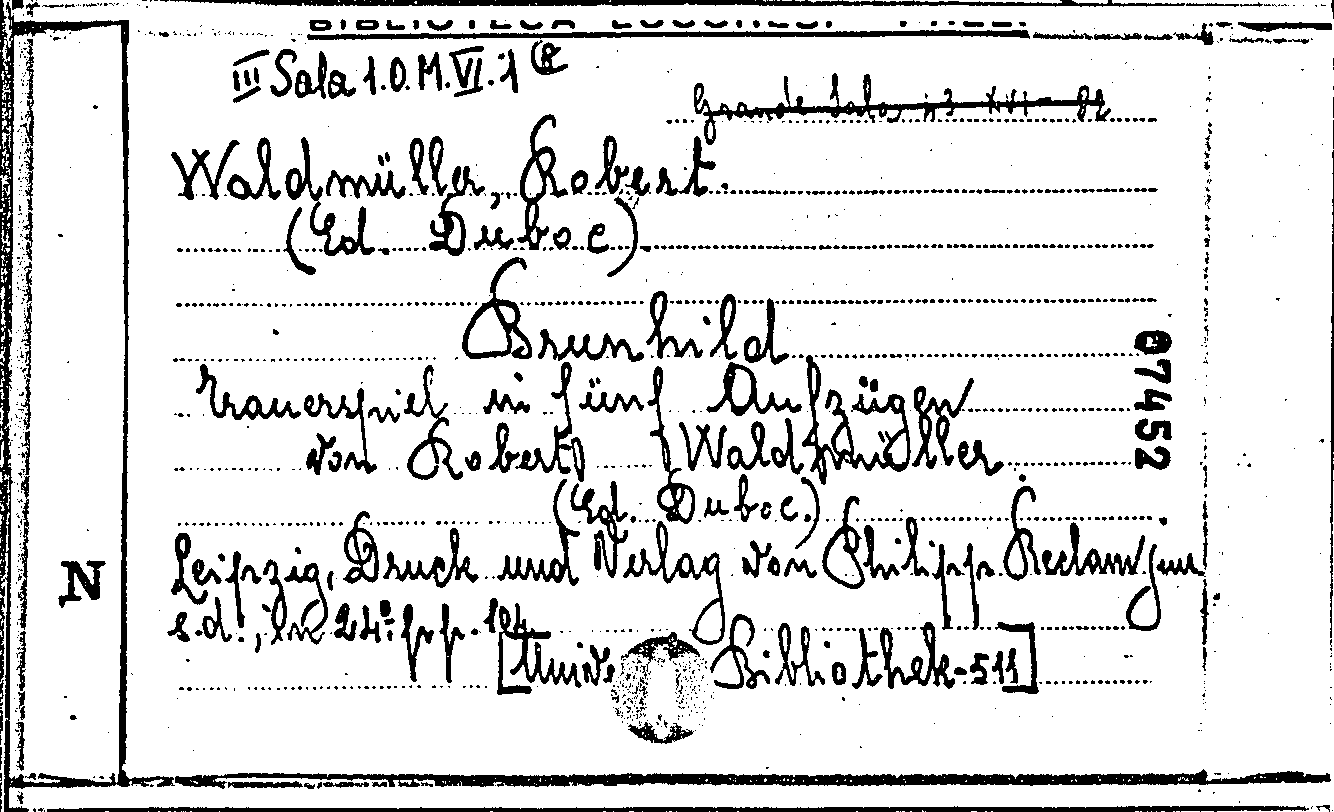 BIBLIOTECA LUCCHESI - PALLI
III Sala 1.O.M.VI.1
Grande Sala
Waldmüller, Robert.
(Ed. Duboc).
Brunhild
Trauerspiel in fünf Aufzügen
von Robert Waldmüller.
(Ed. Duboc.)
Leipzig, Druck und Verlag von Philipp Reclam jun.
s.d., in 24º pp.
[Unive Bibliothek-511]
07452
N